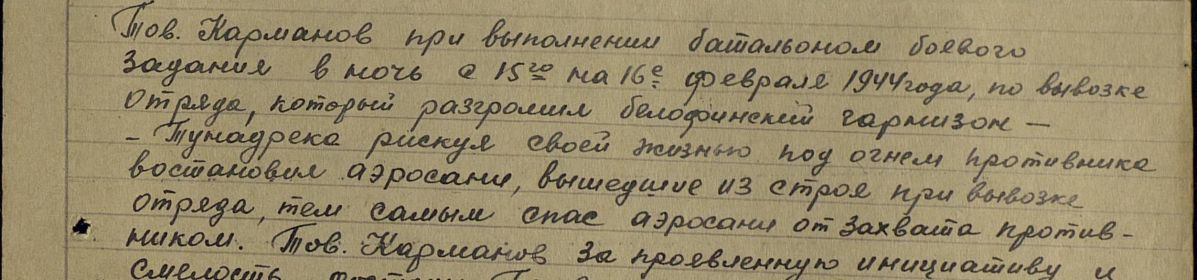 Тов. Карманов при выполнении батальоном боевого
задания в ночь с 15го на 16е февраля 1944 года, по вывозке
отряда, который разгромил белофинский гарнизон —
- Тунадрека рискуя своей жизнью под огнем противника
востановил аэросани, вышедшие из строя при вывозке
отряда, тем самым спас аэросани от захвата против-
ником. Тов. Карманов за проявленную инициативу и
смелость